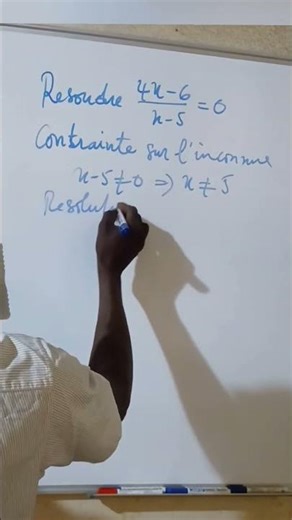 Resoudre 4x-6/x-5 = 0
Contrainte sur l'inconnue
x-5≠0 ⇒ x≠5
Resolut